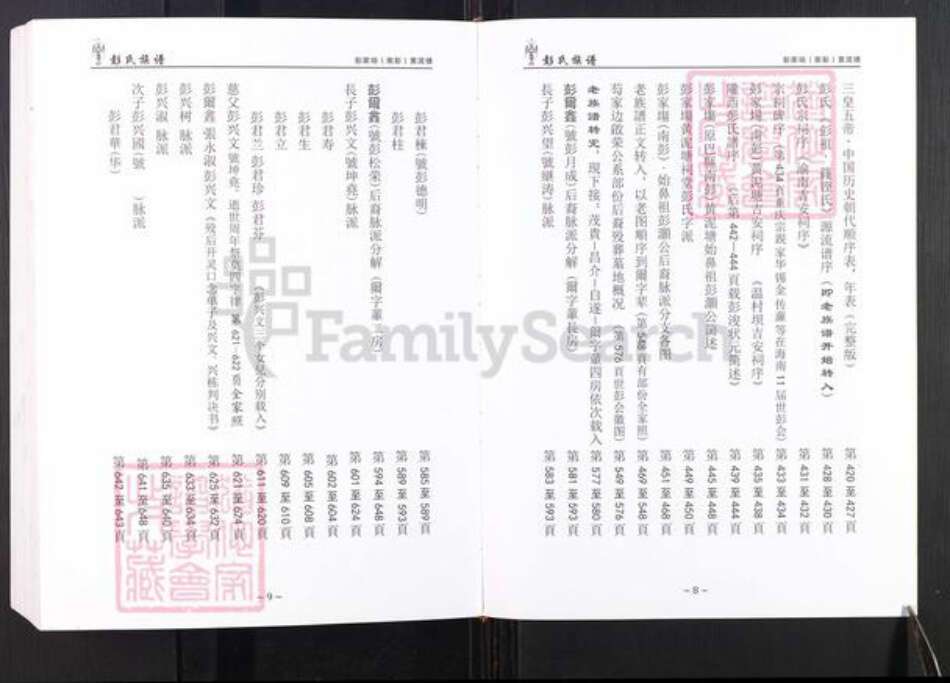 彭氏族谱
三皇五帝·中国历史朝代顺序表，年表（完整版） 第 420 至 427 頁
彭氏（彭祖 錢铿氏）源流谱序（即老族谱开始转入） 第 428 至 430 頁
彭氏宗祠序（渝南吉安祠序） 第 431 至 432 頁
宗祠碑序（第 434 頁重庆宗親家华锡金传廉等在海南 11 届世彭会） 第 433 至 434 頁
彭家塲（南彭）黄泥塘吉安祠序 （温村坝吉安祠序） 第 435 至 438 頁
隴西彭氏譜序 （后第 442—444 頁载彭浚状元简述） 第 439 至 444 頁
彭家塲（原巴縣南彭）黄泥塘始鼻祖彭灝公图述 第 445 至 448 頁
彭家塲黄泥塘祠堂彭氏字派 第 449 至 450 頁
彭家塲（南彭）始鼻祖彭灝公后裔脉派分支各图 第 451 至 468 頁
老族譜正文转入，以老图顺序到爾字辈（第 548 頁有部份全家照） 第 469 至 548 頁
苟家边啟荣公系部份后裔殁葬墓地概况 （第 576 頁世彭会徽图） 第 549 至 576 頁
老族谱转完，现下接：茂貴—昌介—自遂—爾字輩四房依次载入 第 577 至 580 頁
彭爾富（號彭月成）后裔脉派分解（爾字輩長房） 第 581 至 593 頁
長子彭兴望（號繼涛）脉派 第 583 至 593 頁
－8－
彭氏族谱
彭君棟（號彭德明） 第 585 至 589 頁
彭君柱 第 589 至 593 頁
彭爾鑫（號彭松荣）后裔脉派分解（爾字輩 房） 第 594 至 648 頁
長子彭兴文（號坤堯）脉派 第 601 至 624 頁
彭君寿 第 602 至 604 頁
彭君生 第 605 至 608 頁
彭君立 第 609 至 610 頁
彭君兰 彭君珍 彭君芬 （彭兴文三个女兒分别载入） 第 611 至 620 頁
慈父彭兴文號坤堯，逝世周年祭奠四字律 第 621—622 頁全家照 第 621 至 624 頁
彭爾鑫 張水淑 彭兴文（殁后开灵口念单子及兴文、兴栋判决书） 第 625 至 632 頁
彭兴树 脉派 第 633 至 634 頁
彭兴淑 脉派 第 635 至 640 頁
次子彭兴國（號 ）脉派 第 641 至 648 頁
彭君華（华） 第 642 至 643 頁
－9－
FamilySearch